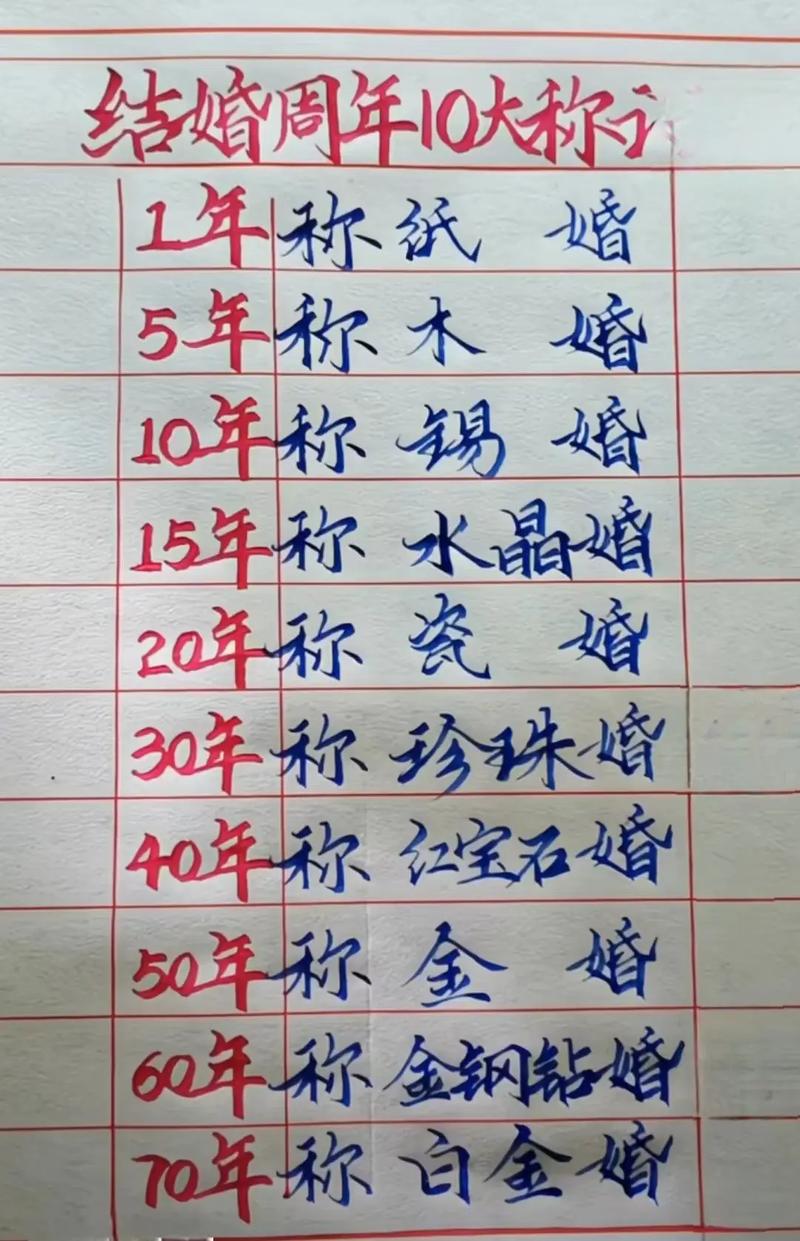 结婚周年10大称
1年称纸婚
5年称木婚
10年称锡婚
15年称水晶婚
20年称瓷婚
30年称珍珠婚
40年称红宝石婚
50年称金婚
60年称金钢钻婚
70年称白金婚